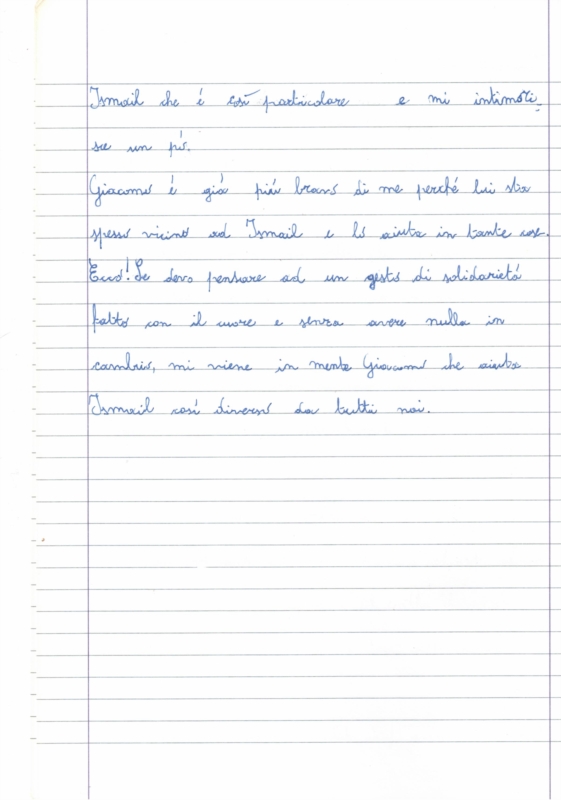 Ismail che é così particolare e mi intimori_
sce un pó.
Giacomo é giá piú bravo di me perché lui sta
spesso vicino ad Ismail e lo aiuta in tante cose.
Ecco! Se devo pensare ad un gesto di solidarietá
fatto con il cuore e senza avere nulla in
cambio, mi viene in mente Giacomo che aiuta
Ismail cosí diverso da tutti noi.